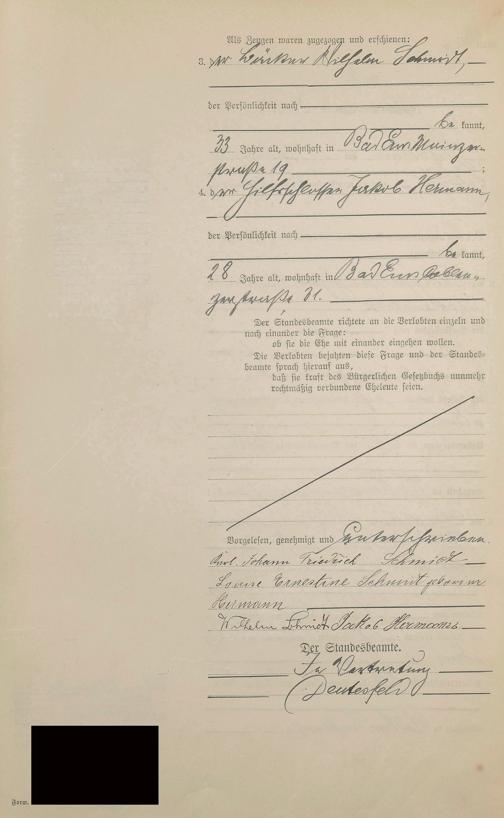 Als Zeugen waren zugezogen und erschienen:
3. der Bäcker Wilhelm Schmidt,
der Persönlichkeit nach
be kannt,
33 Jahre alt, wohnhaft in Bad Ems Mainzer-
straße 19 ;
4. der Hilfsschlosser Jakob Hermann,
der Persönlichkeit nach
be kannt,
28 Jahre alt, wohnhaft in Bad Ems Coblen-
zerstraße 31.
Der Standesbeamte richtete an die Verlobten einzeln und
nach einander die Frage:
ob sie die Ehe mit einander eingehen wollen.
Die Verlobten bejahten diese Frage und der Standes-
beamte sprach hierauf aus,
daß sie kraft des Bürgerlichen Gesetzbuchs nunmehr
rechtmäßig verbundene Eheleute seien.
Vorgelesen, genehmigt und unterschrieben.
Karl Johann Friedrich Schmidt
Louise Ernestine Schmidt geborene
Hermann
Wilhelm Schmidt Jakob Hermann
Der Standesbeamte.
In Vertretung
Form.